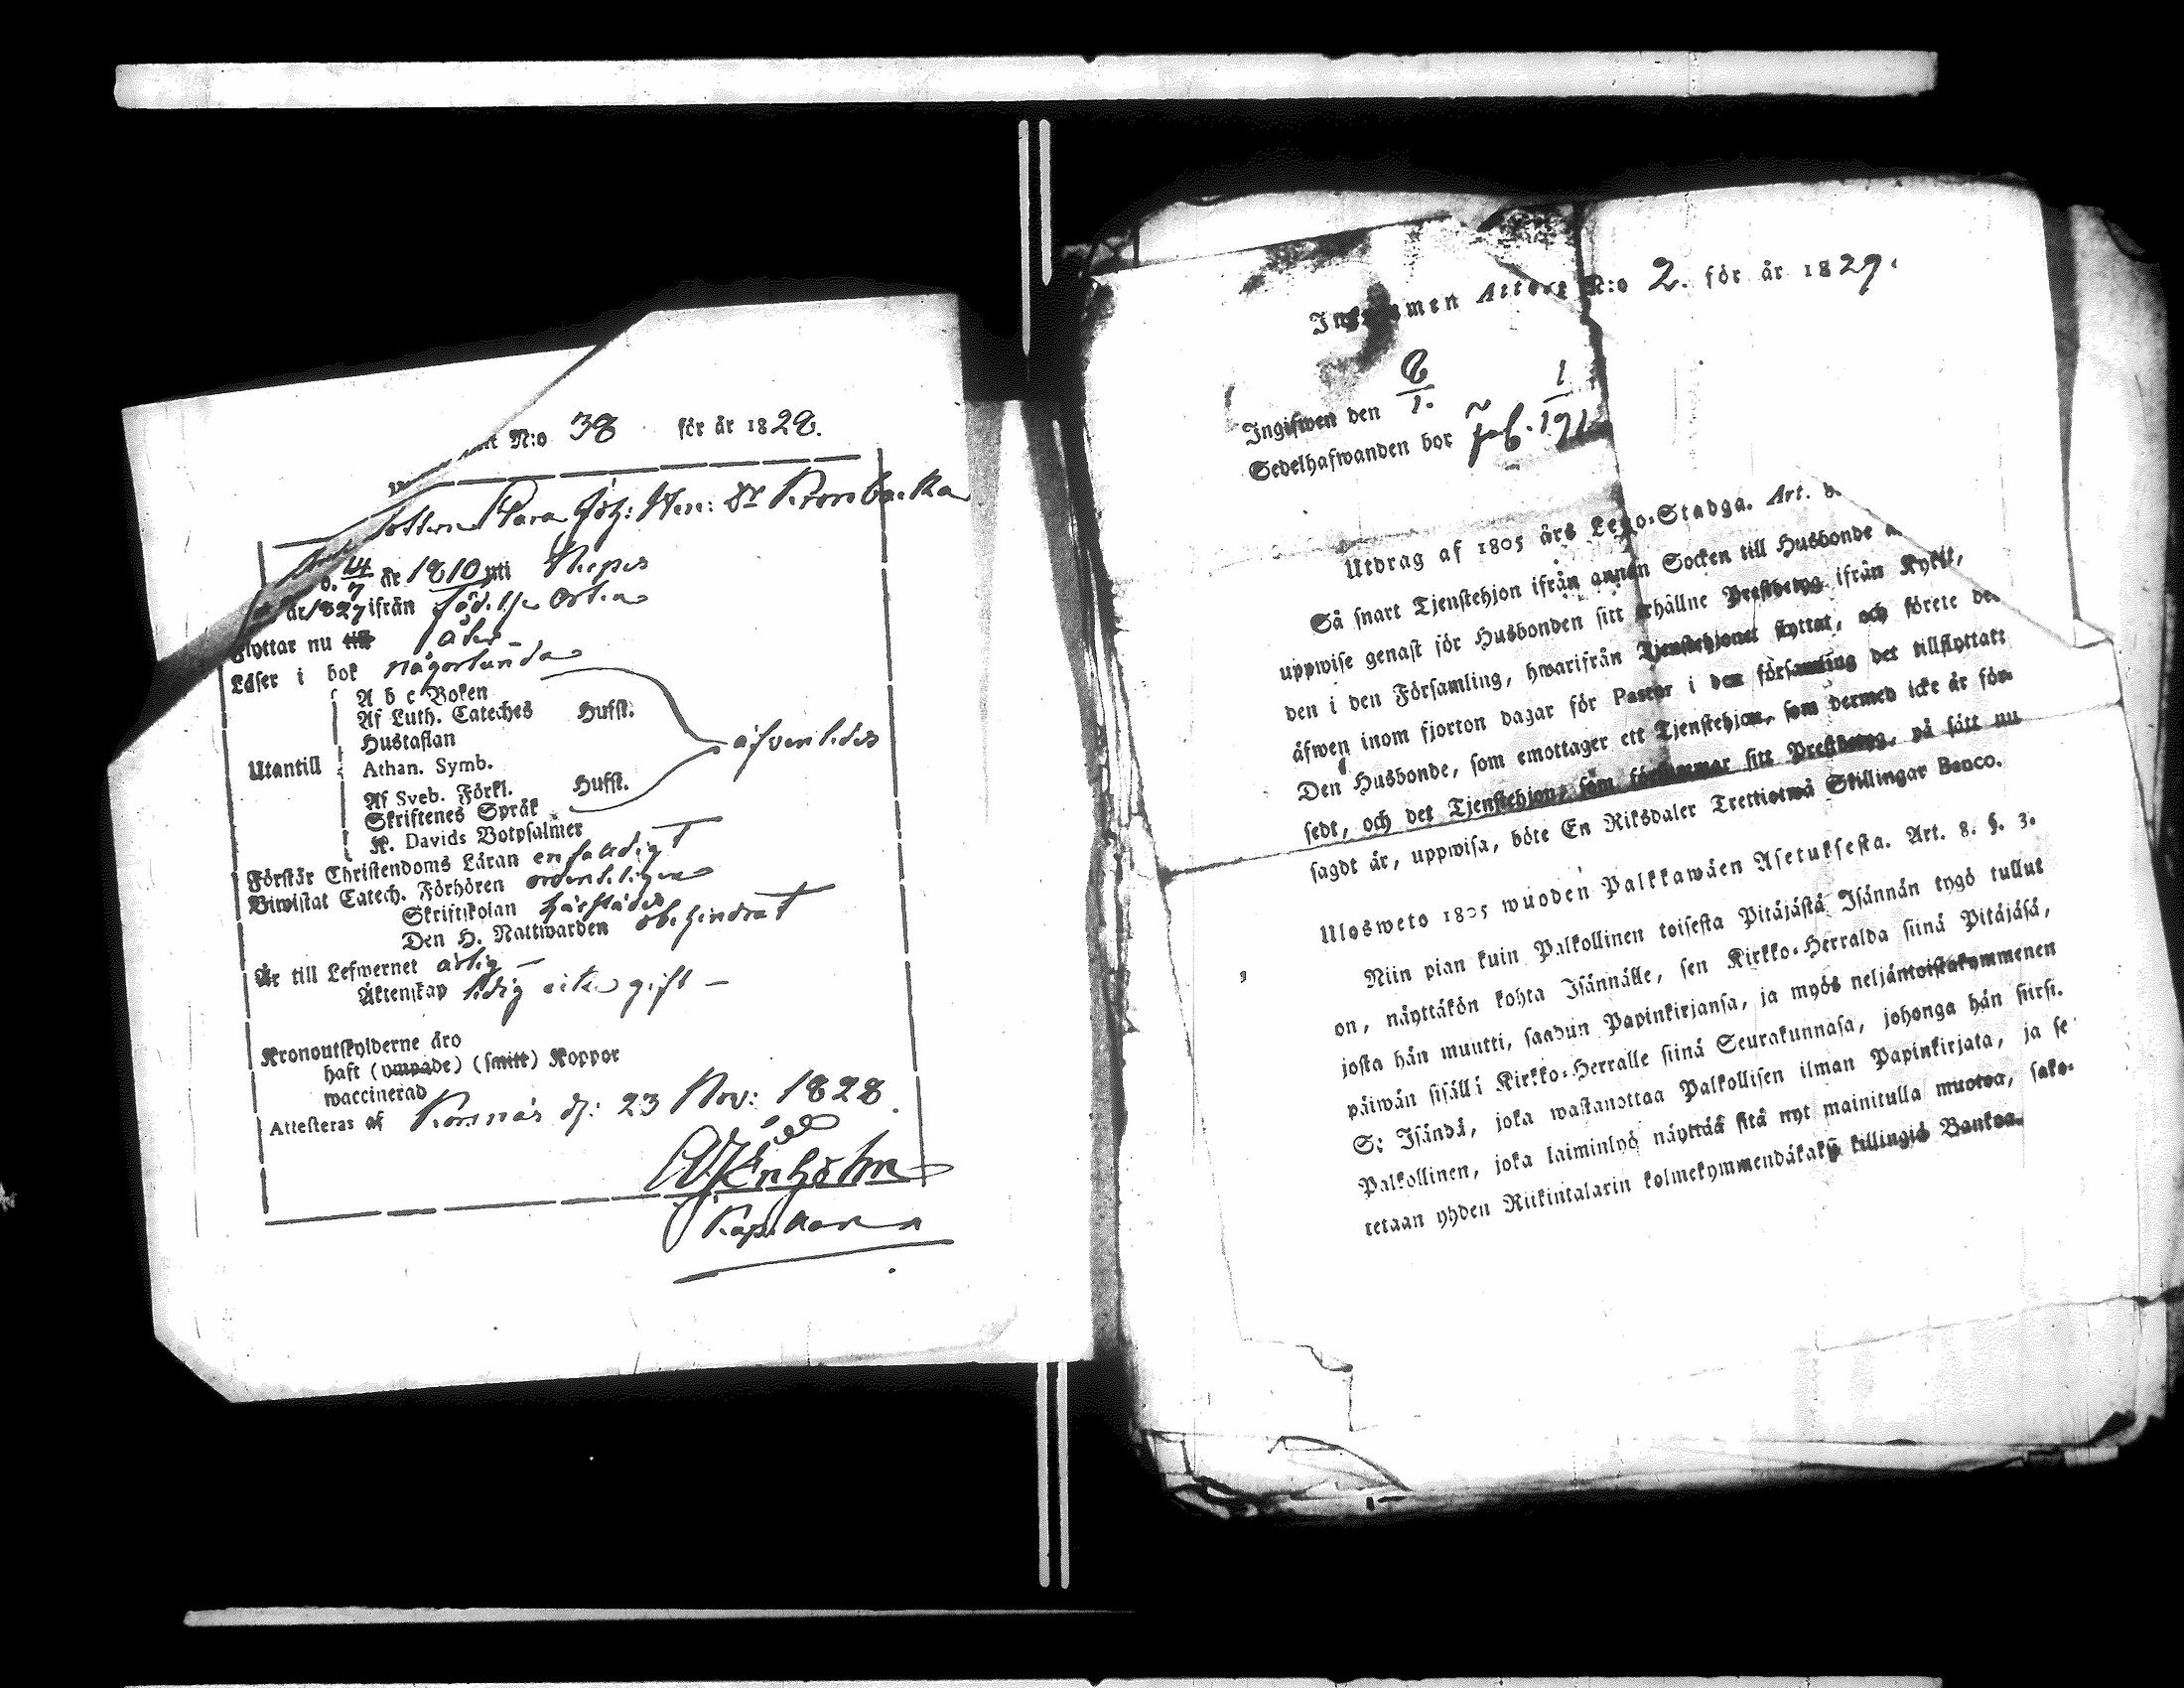 N:o 38 för år 1828.
Clara Joh: Hen: Dr Kronbacka
14/7 år 1810 uti Repis
år 1827 ifrån födelse Orten
Flyttar nu till åter
Läser i bok någorlunda
A b c Boken
Af Luth. Cateches Hufst.
Hustaflan
Utantill Athan. Symb. äfvenledes
Af Sveb. Förkl. Hufst.
Skriftenes Språk
K. Davids Botpsalmer
Förstår Christendoms Läran enfaldigt
Biwistat Catech. Förhören ordentligen
Skriftskolan härstädes
Den H. Nattwarden obehindrat
Är till Lefwernet ärlig
Äktenskap ledig gift
Kronoutskylderne äro
haft (ympade) (smitt) Koppor
waccinerad
Attesteras af Korsnäs d: 23 Nov: 1828.
Enholm
Kapellan
Inkommen Attest N:o 2. för år 1829.
Ingifwen den 8/1.
Sedelhafwanden bor
Utdrag af 1805 års Lego-Stadga. Art. 8.
Så snart Tjenstehjon ifrån annan Socken till Husbonde
uppwise genast för Husbonden sitt erhållne Prestbetyg ifrån Kyrk,
den i den Församling, hwarifrån Tjenstehjonet flyttat, och förete det
äfwen inom fjorton dagar för Pastor i den församling det tillflyttat:
Den Husbonde, som emottager ett Tjenstehjon, som dermed icke är för-
sedt, och det Tjenstehjon, som försummar sitt Prestbetyg, på sätt nu
sagdt är, uppwisa, böte En Riksdaler Trettiotwå Skillingar Banco.
Ulosweto 1805 wuoden Palkkawäen Asetuksesta. Art. 8. §. 3.
Niin pian kuin Palkollinen toisesta Pitäjästä Isännän tygö tullut
on, näyttäkön kohta Isännälle, sen Kirkko-Herralda siinä Pitäjäsä,
josta hän muutti, saadun Papinkirjansa, ja myös neljäntoistakymmenen
päiwän sisälli Kirkko-Herralle siinä Seurakunnasa, johonga hän siirsi.
S: Isändä, joka wastanottaa Palkollisen ilman Papinkirjata, ja se
Palkollinen, joka laiminlyö näyttää sitä nyt mainitulla muotoa, sako-
tetaan yhden Riikintalarin kolmekymmendäkaksi killingiä Bankoa.